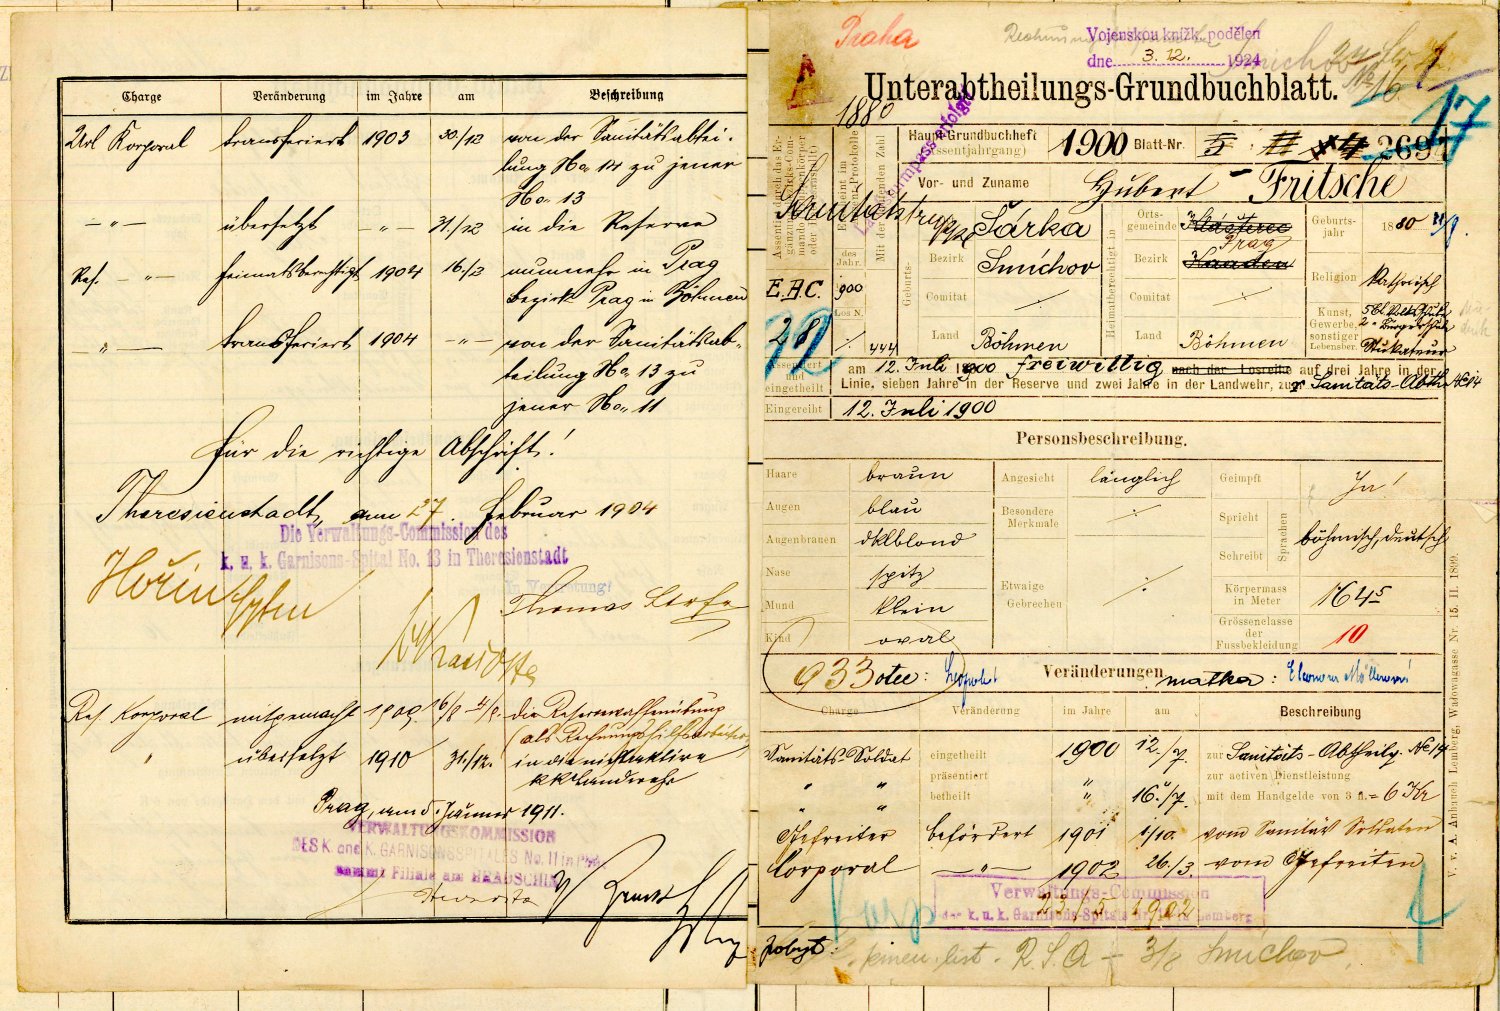 Charge Veränderung im Jahre am Beschreibung
Url Korporal transferiert 1903 30./12 von der Sanitätsabtei-
lung No. 14 zu jener
No. 13
— " — übersetzt — " — 31./12 in die Reserve
Res. " — heimatsberechtigt 1904 16./2 nunmehr in Prag
Bezirk Prag in Böhmen
— " — transferiert 1904 — " — von der Sanitätsab-
teilung No. 13 zu
jener No. 11
Für die richtige Abschrift!
Theresienstadt, am 27. Februar 1904
Die Verwaltungs-Commission des
k. u. k. Garnisons-Spital No. 13 in Theresienstadt
In Vertretung:
Thomas
Res. Korporal mitgemacht 1909. 16/8 die Reservewaffenübung
(als Rechnungshilfsarbeiter)
" übersetzt 1910 31./12. in die nichtaktive
k k Landwehr
Prag, am 5. Jänner 1911.
VERWALTUNGSKOMMISSION
DES K und K. GARNISONSSPITALES No. 11 in PRAG
sammt Filiale am HRADSCHIN
Praha
Vojenskou knížk. podělen
dne 3. 12. 1924
A
Unterabtheilungs-Grundbuchblatt.
No 16
17
1880
Haupt-Grundbuchheft
(Assentjahrgang) 1900 Blatt-Nr. 269
Vor- und Zuname Hubert Fritsche
Geburts-
Šárka
Bezirk Smíchov
Comitat ./.
Land Böhmen
Heimatberechtigt in
Orts-
gemeinde Klášterec
Prag
Bezirk Kaaden
Comitat ./.
Land Böhmen
Geburts-
jahr 1880
Religion Katholisch
Kunst,
Gewerbe,
sonstiger
Lebensber. Stukateur
des
Jahr.
E.B.C. 900
Los N.
28 ./. 444
Assentiert
und
eingetheilt am 12. Juli 1900 freiwillig nach der Losreihe auf drei Jahre in der
Linie, sieben Jahre in der Reserve und zwei Jahre in der Landwehr, zur Sanitäts-Abth. No 14
Eingereiht 12. Juli 1900
Personsbeschreibung.
Haare braun Angesicht länglich Geimpft Ja!
Augen blau Besondere
Merkmale ./. Spricht
Augenbrauen dklblond Sprachen böhmisch, deutsch
Nase spitz Schreibt
Mund klein Etwaige
Gebrechen ./. Körpermass
in Meter 1645
Kind oval Grössenclasse
der
Fussbekleidung 10
933 otec: Leopold Veränderungen matka: Eleonora Müllerová
Charge Veränderung im Jahre am Beschreibung
Sanitäts-Soldat eingetheilt 1900 12./7. zur Sanitäts-Abtheilg. No 14
präsentiert zur activen Dienstleistung
" " betheilt " 16./7. mit dem Handgelde von 3 fl. = 6 Kr
Gefreiter befördert 1901 1/10. vom Sanitäts Soldaten
Corporal — " — 1902 26./3. vom Gefreiten
Verwaltungs-Commission
der k. u. k. Garnisons-Spitals Nr. 14 in Lemberg
23/5 1902
pobyt: R.S.A – 3/8 Smichov.
V. v. A. Anbauch Lemberg, Wadowagasse Nr. 15. II. 1899.